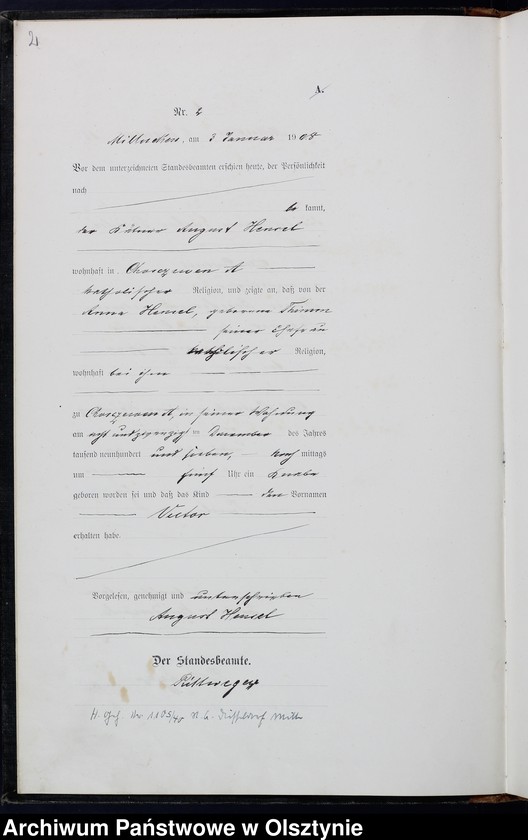 2
A.
Nr. 2
am 3 Januar 1908
Vor dem unterzeichneten Standesbeamten erschien heute, der Persönlichkeit
nach
be kannt,
der August Hensel
wohnhaft in
katholischer Religion, und zeigte an, daß von der
Anna Hensel, geborene Thimm
seiner Ehefrau
katholischer Religion,
wohnhaft bei ihm
zu in seiner Wohnung
am acht und zwanzigsten Dezember des Jahres
tausend neunhundert und sieben, Nach mittags
um fünf Uhr ein Knabe
geboren worden sei und daß das Kind den Vornamen
Victor
erhalten habe.
Vorgelesen, genehmigt und unterschrieben
August Hensel
Der Standesbeamte.
Archiwum Państwowe w Olsztynie